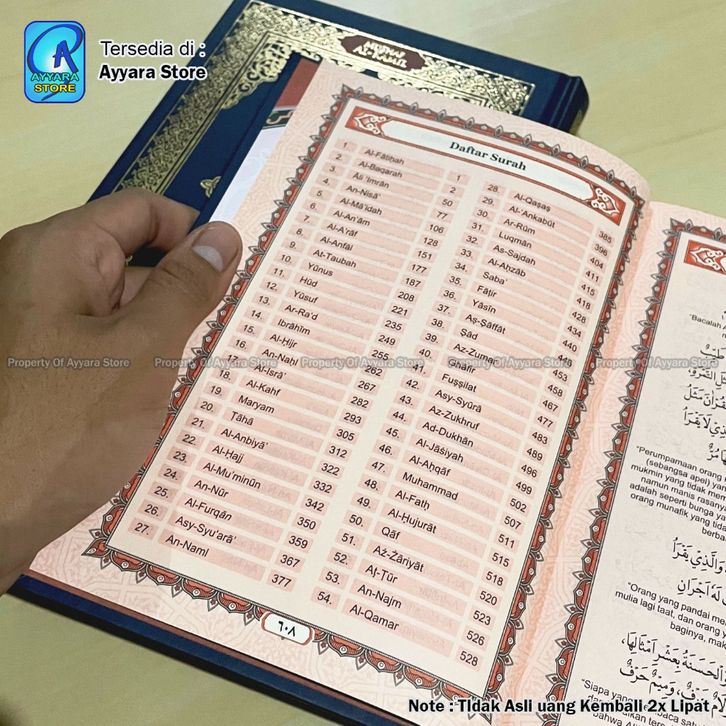 AYYARA
STORE
Tersedia di :
Ayyara Store
MUSHAF
AL-KAMIL
Daftar Surah
1. Al-Fātiḥah 1
2. Al-Baqarah 2
3. Āli 'Imrān 50
4. An-Nisā' 77
5. Al-Mā'idah 106
6. Al-An'ām 128
7. Al-A'rāf 151
8. Al-Anfāl 177
9. At-Taubah 187
10. Yūnus 208
11. Hūd 221
12. Yūsuf 235
13. Ar-Ra'd 249
14. Ibrāhīm 255
15. Al-Ḥijr 262
16. An-Naḥl 267
17. Al-Isrā' 282
18. Al-Kahf 293
19. Maryam 305
20. Ṭāhā 312
21. Al-Anbiyā' 322
22. Al-Ḥajj 332
23. Al-Mu'minūn 342
24. An-Nūr 350
25. Al-Furqān 359
26. Asy-Syu'arā' 367
27. An-Naml 377
28. Al-Qaṣaṣ 385
29. Al-'Ankabūt 396
30. Ar-Rūm 404
31. Luqmān 411
32. As-Sajdah 415
33. Al-Aḥzāb 418
34. Saba' 428
35. Fāṭir 434
36. Yāsīn 440
37. Aṣ-Ṣāffāt 446
38. Ṣād 453
39. Az-Zumar 458
40. Gāfir 467
41. Fuṣṣilat 477
42. Asy-Syūrā 483
43. Az-Zukhruf 489
44. Ad-Dukhān 496
45. Al-Jāṡiyah 499
46. Al-Aḥqāf 502
47. Muhammad 507
48. Al-Fatḥ 511
49. Al-Ḥujurāt 515
50. Qāf 518
51. Aż-Żāriyāt 520
52. Aṭ-Ṭūr 523
53. An-Najm 526
54. Al-Qamar 528
٦٠٨
"Perumpamaan orang
(sebangsa apel) yang
mukmin yang tidak
namun manis rasanya
adalah seperti bunga
orang munafik yang
وَالَّذِي يَقْرَأُ
لَهُ أَجْرَانِ
"Orang yang pandai
mulia lagi taat, dan orang
baginya,
الْحَسَنَةُ بِعَشْرِ أَمْثَالِهَا،
حَرْفٌ، وَمِيمٌ حَرْفٌ
"Siapa yang
Property Of Ayyara Store Property Of Ayyara Store Property Of Ayyara Store Property Of Ayyara Store Property Of Ayyara Store
Note : Tidak Asli uang Kembali 2x Lipat